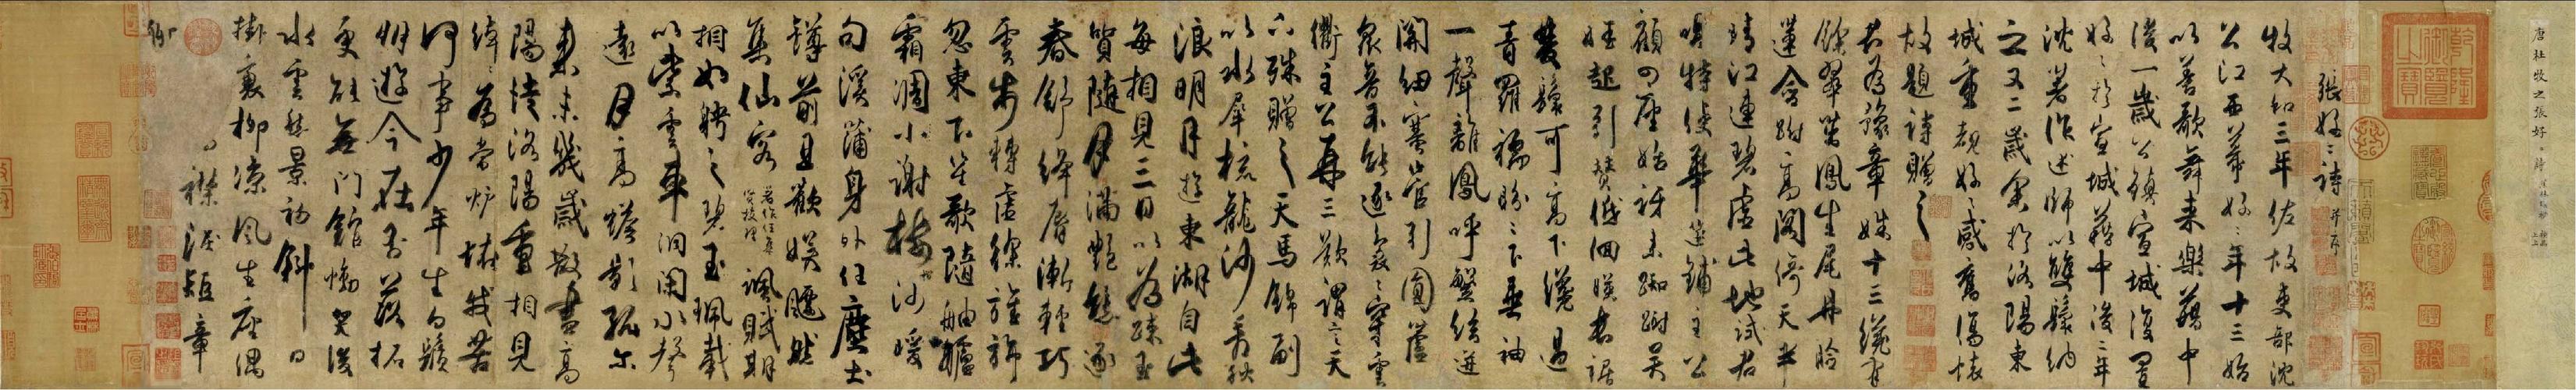 唐杜牧之張好好詩
乾隆御覽之寶
張好好詩并序
牧大和三年佐故吏部沈
公江西幕好好年十三始
以善歌舞来樂籍中
後一歲公鎮宣城復置
好好於宣城籍中後二年
沈著作述師以雙鬟納
之又二歲余於洛陽東
城重覩好好感舊傷懷
故題詩贈之
君為豫章姝十三纔有
餘翠茁鳳生尾丹臉
蓮含跗高閣倚天半
晴江連碧虛此地試君
唱特使華筵鋪主公
顧四座始訝来踟蹰吳
娃起引贊低佪暎長裾
雙鬟可高下纔過
青羅襦盼盼下垂袖
一聲離鳳呼繁絃迸
關紐塞管引圓蘆
衆音不能逐裊裊穿雲
衢主公再三歎謂言天
下殊贈之天馬錦副
以水犀梳龍沙看秋
浪明月遊東湖自此
每相見三日以為踈玉
質隨月滿艷態逐
春舒絳脣漸輕巧
雲步轉虛徐旌旆
忽東下笙歌隨舳艫
霜凋小謝樹沙暖
句溪蒲身外任塵土
罇前且歡娛飄然
集仙客著作任集賢校理諷賦期
相如聘之碧玉珮載
以紫雲車洞閉水聲
遠月高蟾影孤尓
来未幾歲散盡高
陽徒洛陽重相見
綽綽為當爐怪我苦
何事少年生白鬚
朋遊今在否落拓
更能無門館慟哭後
水雲愁景初斜日
掛衰柳涼風生座偶
襟淚短章
聊